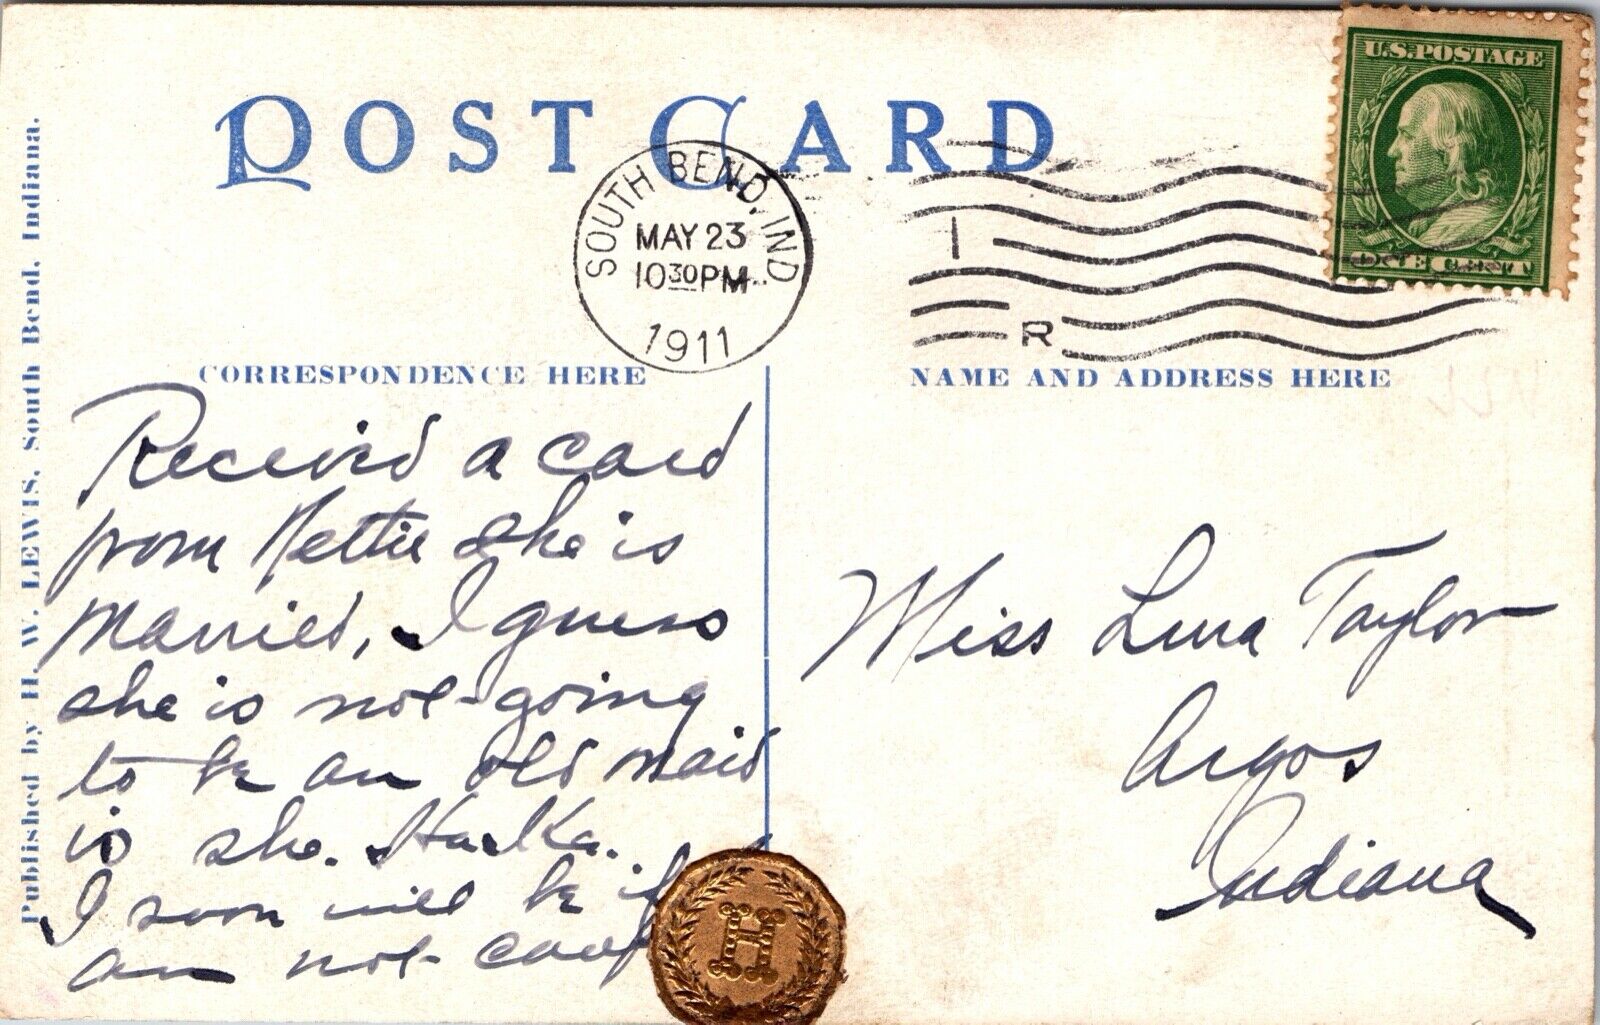 POST CARD
U.S. POSTAGE
SOUTH BEND, IND
MAY 23
10 30 PM
1911
I
R
CORRESPONDENCE HERE
NAME AND ADDRESS HERE
Published by H. W. LEWIS, South Bend, Indiana.
Received a card
from Nettie she is
Married, I guess
she is not going
to be an old maid
is she. Ha. Ha.
I soon will be if
am not
Miss Lura Taylor
Argos
Indiana
H